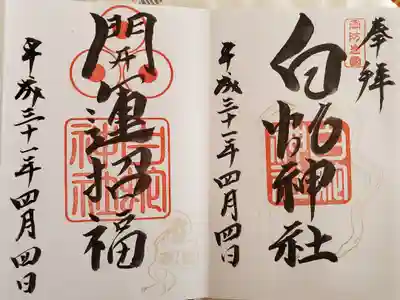 奉拝
周防岩國
白蛇神社
平成三十一年四月四日
開運招福
平成三十一年四月四日